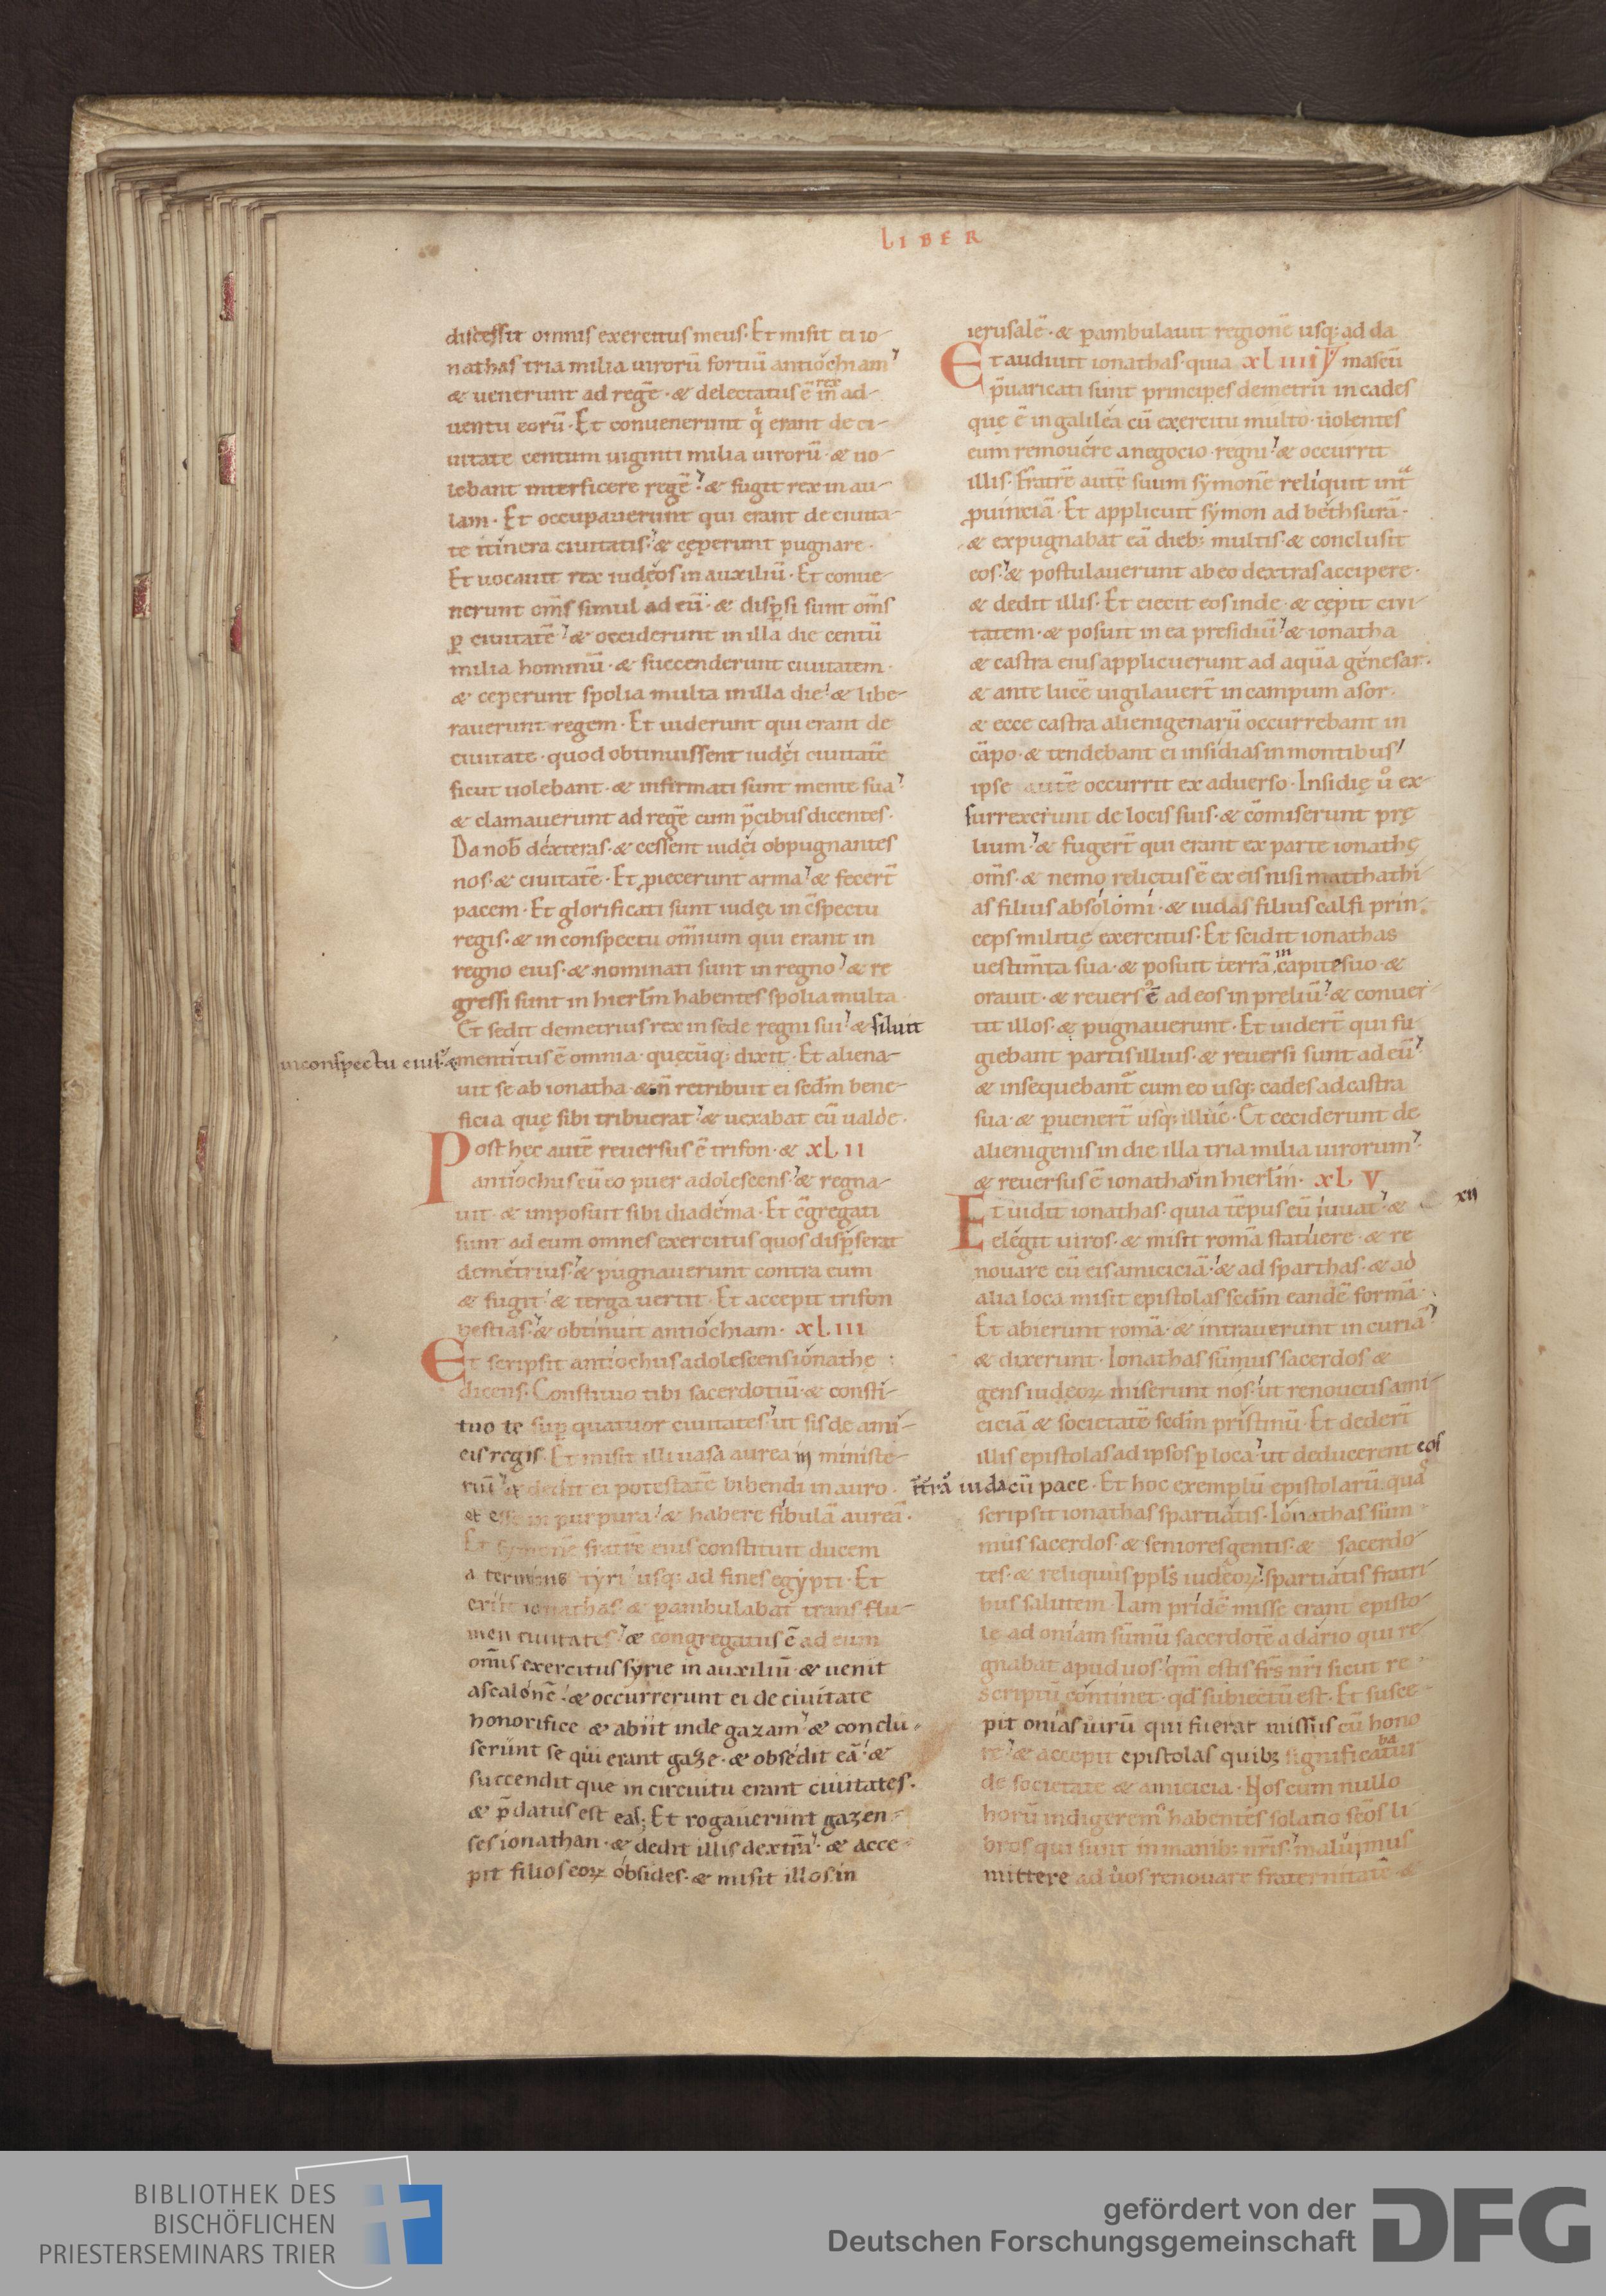 LIBER
discessit omnis exercitus meus· Et misit ei io-
nathas tria milia uirorū fortiū antiochiam
& uenerunt ad regē· & delectatus ē rex in ad-
uentu eorū· Et conuenerunt q̇ erant de ci-
uitate centum uiginti milia uirorū· & uo-
lebant interficere regē· & fugit rex in au-
lam· Et occupauerunt qui erant de ciuita-
te itinera ciuitatis· & cęperunt pugnare·
Et uocauit rex iudęos in auxiliū· Et conue-
nerunt om̄s simul ad eū· & disp̄si sunt om̄s
p̱ ciuitatē· & occiderunt in illa die centū
milia hominū· & succenderunt ciuitatem·
& ceperunt spolia multa in illa die· & libe-
rauerunt regem· Et uiderunt qui erant de
ciuitate· quod obtinuissent iudęi ciuitatē
sicut uolebant· & infirmati sunt mente sua·
& clamauerunt ad regē cum p̄cibus dicentes·
Da nob̄ dexteras· & cessent iudęi obpugnantes
nos· & ciuitatē· Et ꝓiecerunt arma· & fecer̄t
pacem· Et glorificati sunt iudęi in c̄spectu
regis· & in conspectu om̄ium qui erant in
regno eius· & nominati sunt in regno· & re
gressi sunt in hierl̄m habentes spolia multa·
Et sedit demetrius rex in sede regni sui· & siluit
in conspectu eius· & mentitus ē omnia· quęcūq; dixit· Et aliena-
uit se ab ionatha· & n̄ retribuit ei sed̄m bene-
ficia quę sibi tribuerat· & uexabat eū ualde·
Post hęc autē reuersus ē trifon· & XLII
antiochus cū eo puer adolescens· & regna-
uit· & imposuit sibi diadema· Et c̄gregati
sunt ad eum omnes exercitus quos disp̄serat
demetrius· & pugnauerunt contra eum
& fugit· & terga uertit· Et accepit trifon
bestias· & obtinuit antiochiam· XLIII
Et scripsit antiochus adolescens ionathe
dicens· Constituo tibi sacerdotiū· & consti-
tuo te sup̱ quatuor ciuitates· ut sis de ami-
cis regis· Et misit illi uasa aurea in ministe-
riū· & dedit ei potestatē bibendi in auro·
et esse in purpura· & habere fibulā aureā·
Et symonē fratrē eius constituit ducem
a terminis tyri usq; ad fines egypti· Et
exiit ionathas & p̱ambulabat trans flu-
men ciuitates· & congregatus ē ad eum
om̄is exercitus syrie in auxiliū· & uenit
ascalonē· & occurrerunt ei de ciuitate
honorifice & abiit inde gazam· & conclu-
serunt se qui erant gaze· & obsedit eā· &
succendit que in circuitu erant ciuitates·
& p̄datus est eas; Et rogauerunt gazen-
ses ionathan· & dedit illis dextrā· & acce-
pit filios eoꝝ obsides· & misit illos in
ierusalē· & p̱ambulauit regionē usq; ad da
Et audiuit ionathas· quia XLIIII mascū
p̄uaricati sunt principes demetrii in cades
quę ē in galilea cū exercitu multo· uolentes
eum remouere a negocio regni· & occurrit
illis· Fratrē autē suum symonē reliquit int̄
ꝓuinciā· Et applicuit symon ad bethsurā·
& expugnabat eā dieb; multis· & conclusit
eos· & postulauerunt ab eo dextras accipere·
& dedit illis· Et eiecit eos inde· & cępit civi
tatem· & posuit in ea presidiū· & ionatha
& castra eius applicuerunt ad aquā genesar·
& ante lucē uigilauer̄t in campum asor·
& ecce castra alienigenarū occurrebant in
cāpo· & tendebant ei insidias in montibus
ipse autē occurrit ex aduerso· Insidię ů ex-
surrexerunt de locis suis· & cōmiserunt prę
lium· & fuger̄t qui erant ex parte ionathę
om̄s· & nemo relictus ē ex eis nisi matthathi
as filius absolomi· & iudas filius calfi prin-
ceps militię exercitus· Et scidit ionathas
uestim̄ta sua· & posuit terrā in capite suo· &
orauit· & reuers̓ ē ad eos in preliū· & conuer-
tit illos· & pugnauerunt· Et uider̄t qui fu
giebant partis illius· & reuersi sunt ad eū·
& insequebant̄ cum eo usq; cades ad castra
sua· & p̱uener̄t usq; illuc· Et ceciderunt de
alienigenis in die illa tria milia uirorum·
& reuersus ē ionathas in hierl̄m· XLV
Et uidit ionathas· quia tēpus eū iuuat· & xij
elegit uiros· & misit romā statuere· & re
nouare cū eis amiciciā· & ad sparthas· & ad
alia loca misit epistolas sed̄m eandē formā·
Et abierunt romā· & intrauerunt in curiā
& dixerunt· Ionathas sūmus sacerdos &
gens iudęoꝝ miserunt nos· ut renouetis ami-
ciciā & societatē sed̄m pristinū· Et deder̄t
illis epistolas ad ipsos p̱ loca· ut deducerent eos
in t̄rā iuda cū pace· Et hoc exemplū epistolarū qua
scripsit ionathas spartiatis· Ionathas sum
mus sacerdos· & seniores gentis· & sacerdo
tes· & reliquus ppl̄s iudeoꝝ· spartiatis fratri
bus salutem· Iam pridē misse erant episto-
le ad oniam sūmū sacerdotē a dario qui re
gnabat apud uos· qm̄ estis fr̄s nr̄i sicut re
scriptū continet· qd̄ subiectū est· Et susce-
pit onias uirū qui fuerat missus cū hono
re· & accepit epistolas quib; significabatur
de societate & amicicia· Nos cum nullo
horū indigerem̓ habentes solatio sc̄os li
bros qui sunt in manib; nr̄is· maluimus
mittere ad uos renouare fraternitatē &
BIBLIOTHEK DES
BISCHÖFLICHEN
PRIESTERSEMINARS TRIER
gefördert von der
Deutschen Forschungsgemeinschaft
DFG